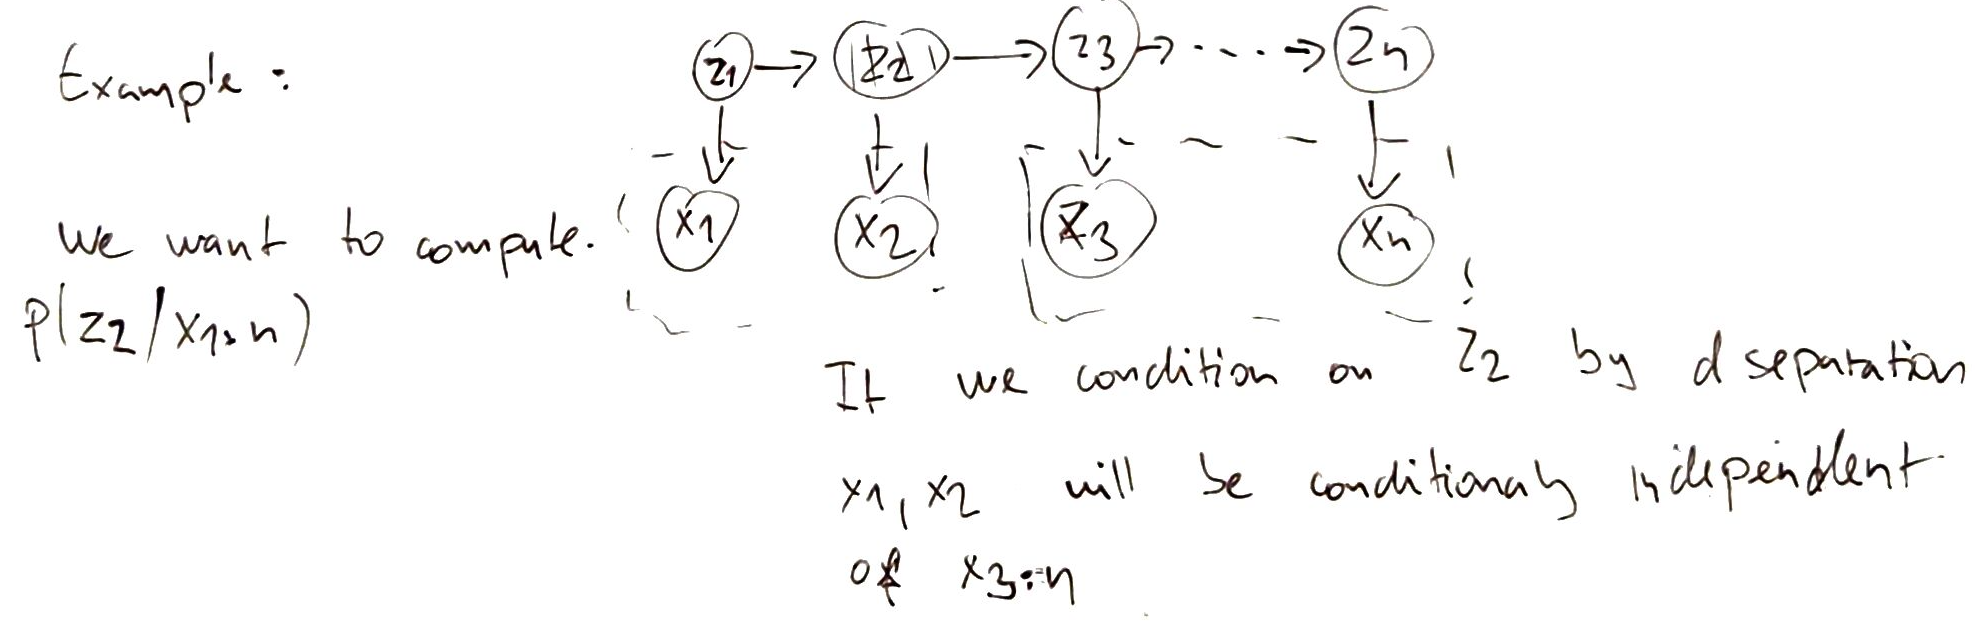 Example :
z1 → z2 → z3 → .... → zn
x1 x2 x3 xn
We want to compute.
P(z2/x1:n)
If we condition on z2 by d separation
x1, x2 will be conditionaly independent
of x3:n